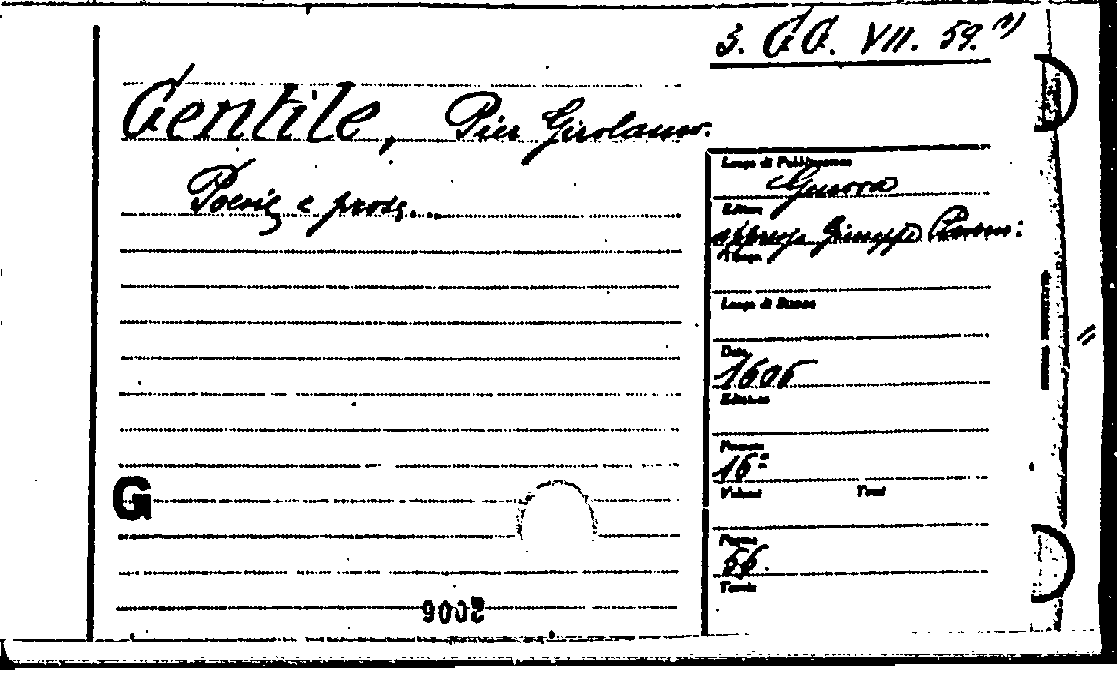 3. GG. VII. 59. 1)
Gentile, Pier Girolamo.
Poesie e prose...
Luogo di Pubblicazione
Genova
Editore
appresso Giuseppe Pavoni:
Luogo di Stampa
Data
1605
Edizione
Formato
16°
Volumi Tomi
Pagine
56.
Tavole
G
2006